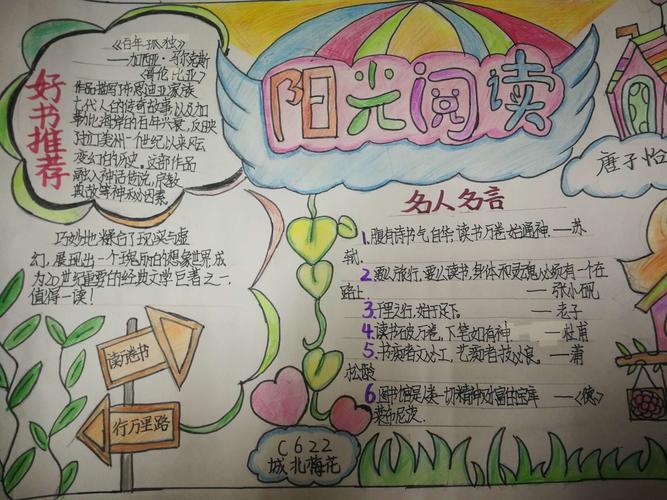 阳光阅读
唐子怡
好书推荐
《百年孤独》
——加西亚·马尔克斯
(哥伦比亚)
作品描写了布恩迪亚家族
七代人的传奇故事,以及加
勒比海岸的百年兴衰,反映
拉丁美洲一个世纪以来风云
变幻的历史。这部作品
融入神话传说、
典故等神秘因素,
巧妙地糅合了现实与虚
幻,展现出一个瑰丽的想象世界,成
为20世纪重要的经典文学巨著之一,
值得一读!
读万卷书
行万里路
名人名言
1.腹有诗书气自华,读书万卷始通神.——苏
轼.
2.要么旅行,要么读书,身体和灵魂,必须有一个在
路上.——张小砚
3.千里之行,始于足下.——老子
4.读书破万卷,下笔如有神.——杜甫
5.书痴者文必工,艺痴者技必良.——蒲
松龄
6.图书馆是人类一切精神财富的宝库——《德》
莱布尼茨.
C622
城北梅花